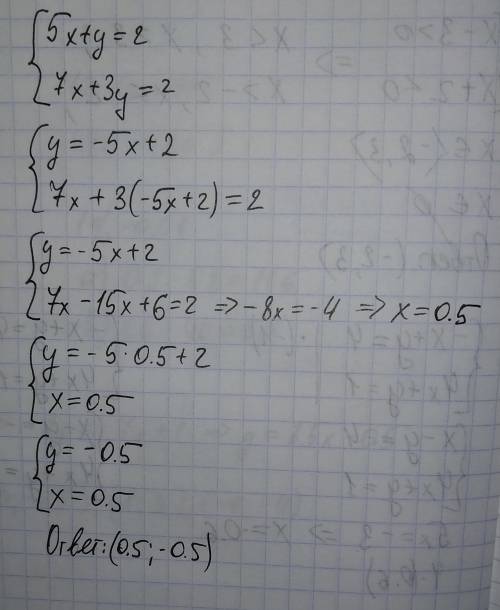 5x+y=2
7x+3y=2
y=-5x+2
7x+3(-5x+2)=2
y=-5x+2
7x-15x+6=2 => -8x=-4 => x=0.5
y=-5·0.5+2
x=0.5
y=-0.5
x=0.5
Ответ: (0.5; -0.5)